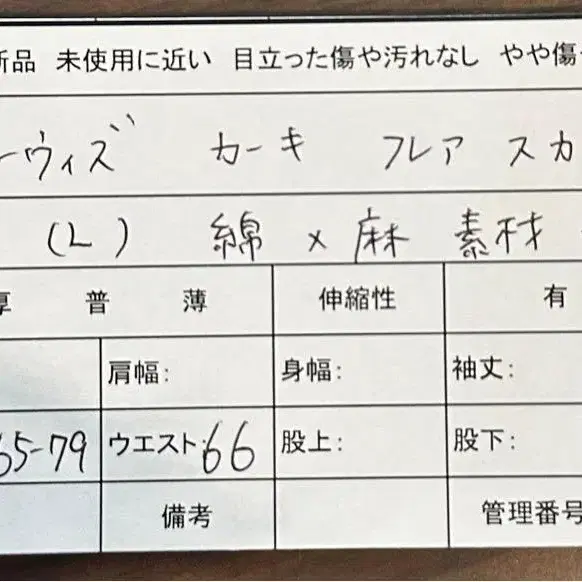 新品 未使用に近い 目立った傷や汚れなし やや傷
ーウィズ カーキ フレア スカ
(L) 綿 × 麻 素材
厚 普 薄 伸縮性 有
肩幅: 身幅: 袖丈:
65-79 ウエスト:66 股上: 股下:
備考 管理番号